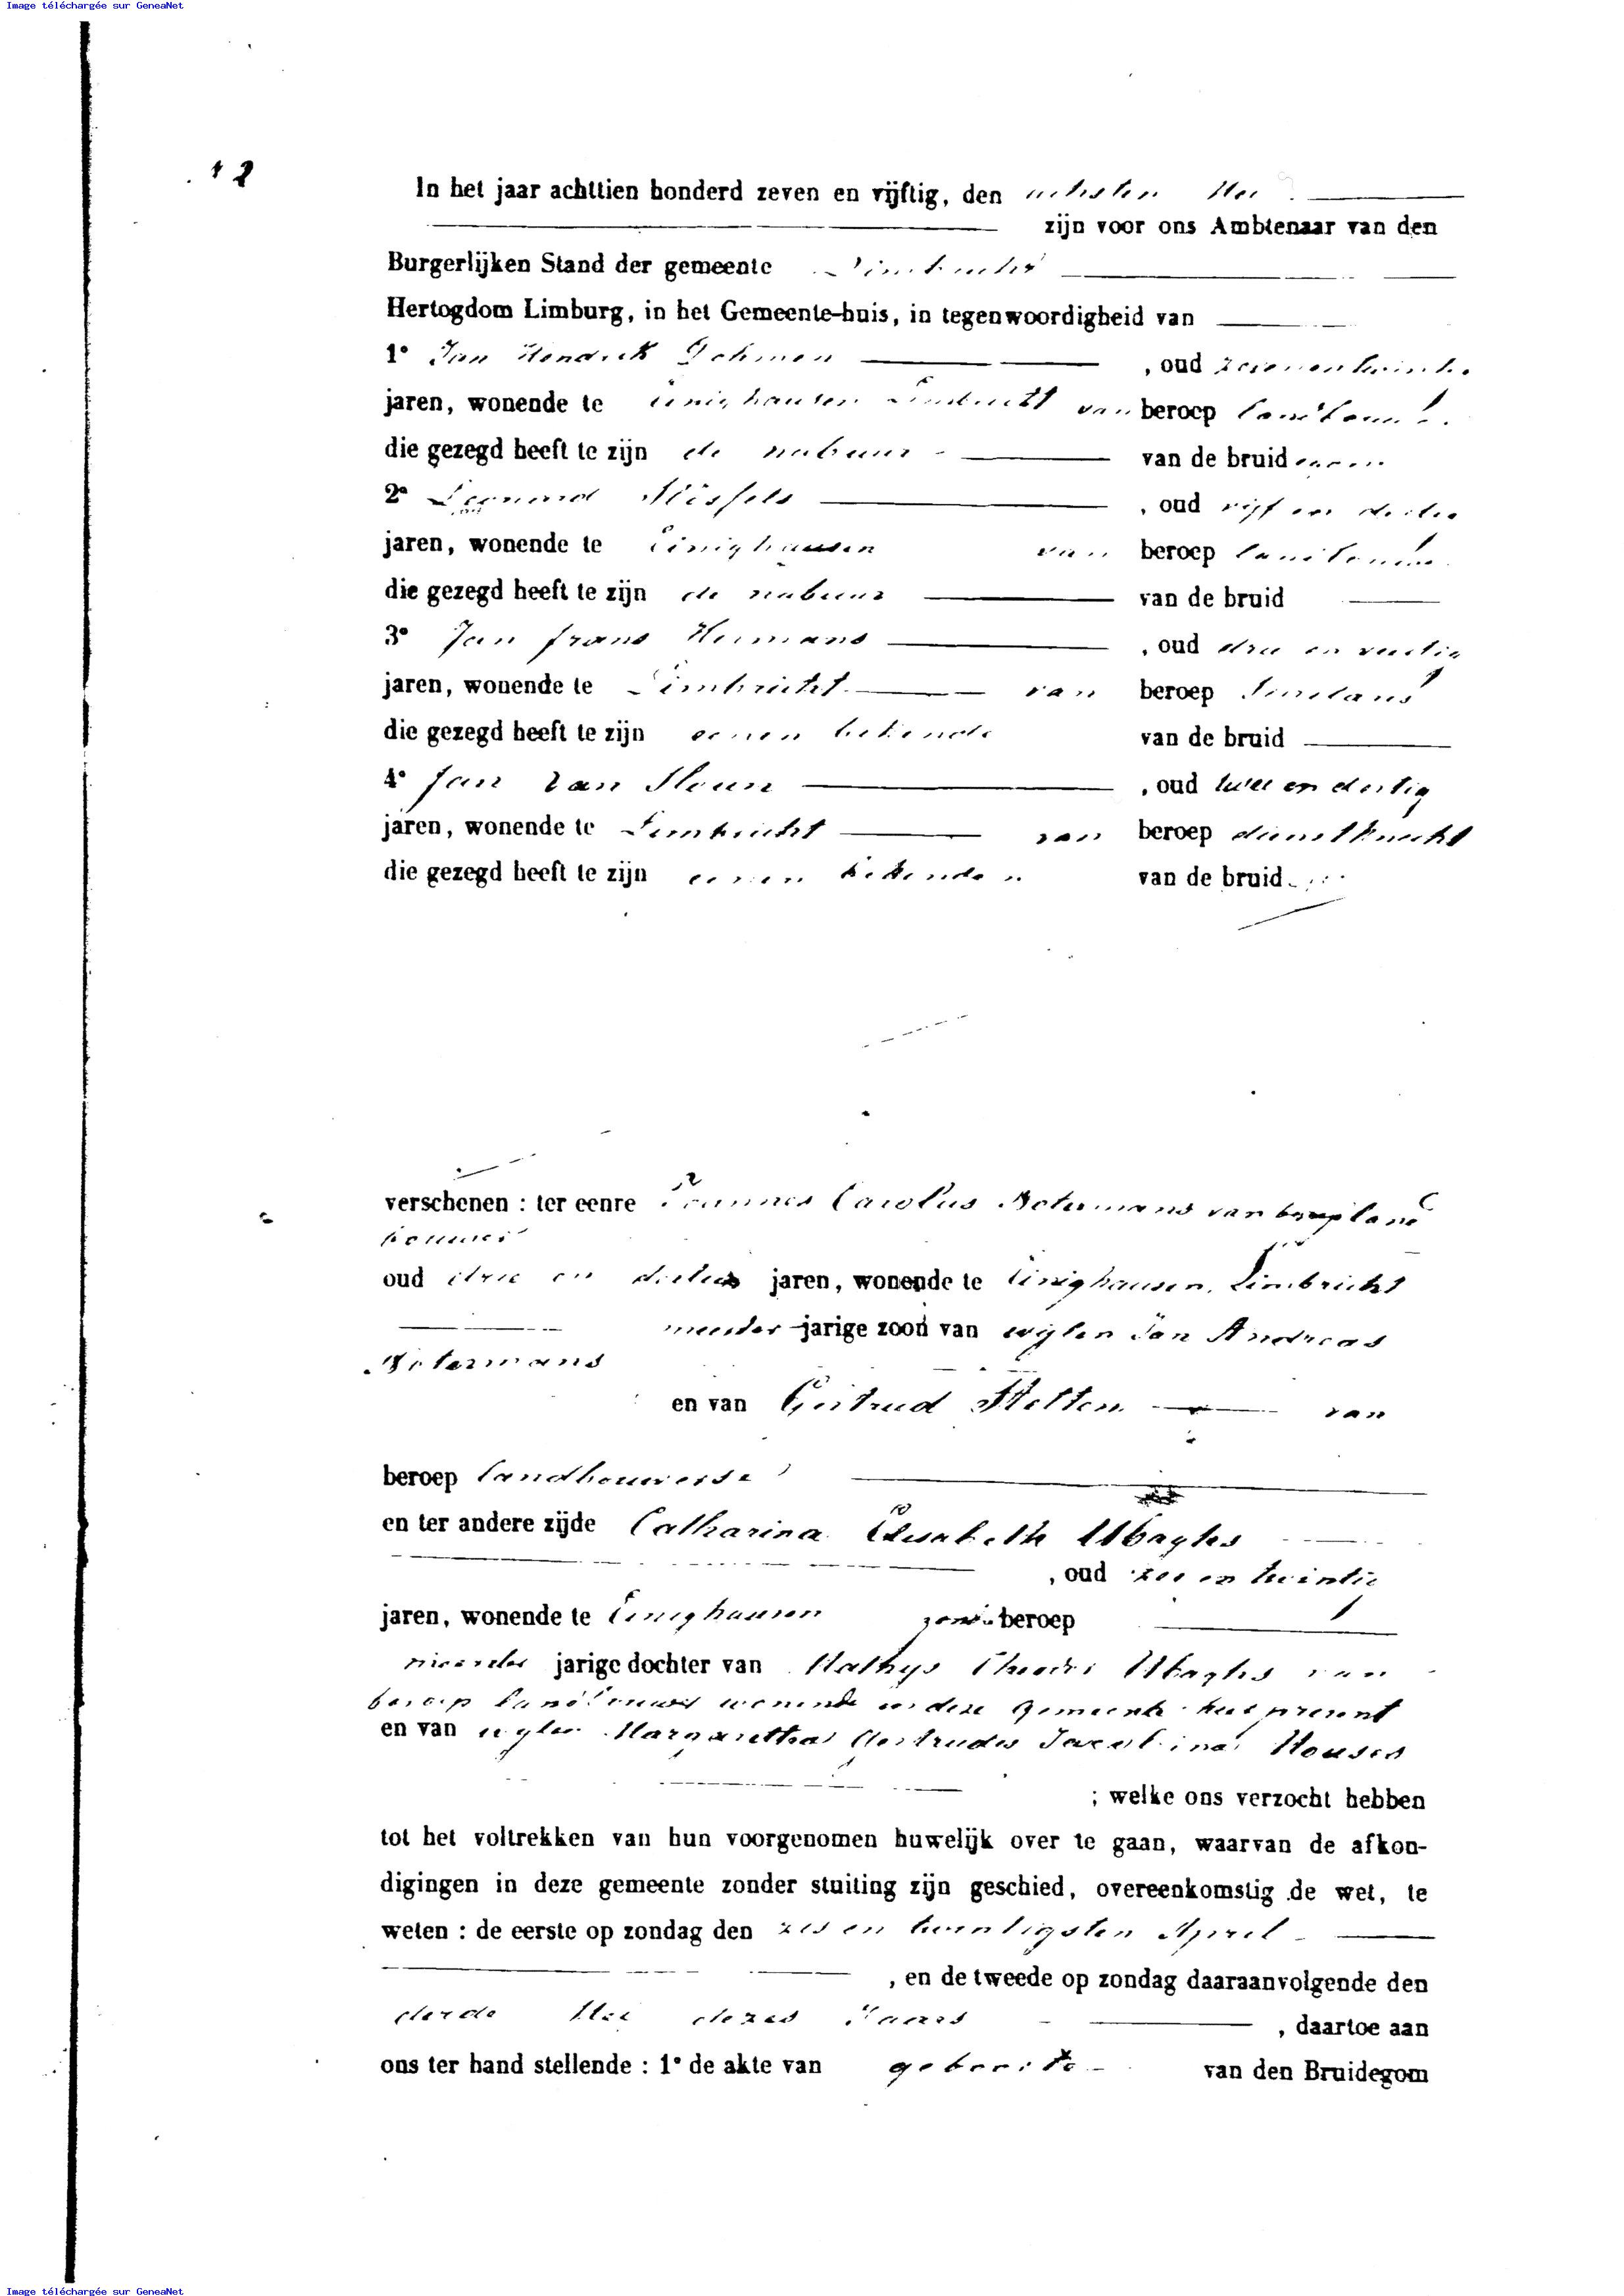 Image téléchargée sur GeneaNet
12
In het jaar achttien honderd zeven en vijftig, den achsten Mei
zijn voor ons Ambtenaar van den
Burgerlijken Stand der gemeente Limbricht
Hertogdom Limburg, in het Gemeente-huis, in tegenwoordigheid van
1° Jan Hendrik , oud
jaren, wonende te Einighausen Limbricht van beroep
die gezegd heeft te zijn de nabuur van de bruid
2° , oud vijf en dertig
jaren, wonende te Einighausen van beroep
die gezegd heeft te zijn de nabuur van de bruid
3° Jan frans Hermans , oud drie en veertig
jaren, wonende te Limbricht van beroep
die gezegd heeft te zijn eenen bekende van de bruid
4° Jan van , oud twee en dertig
jaren, wonende te Limbricht van beroep dienstknecht
die gezegd heeft te zijn eenen bekenden van de bruid
verschenen : ter eenre Joannes Carolus van beroep land
bouwer
oud drie en dertig jaren, wonende te Einighausen, Limbricht
meerder jarige zoon van wijlen Jan Andreas
en van Gertrud van
beroep landbouwerse
en ter andere zijde Catharina Elisabeth Ubaghs
, oud zes en twintig
jaren, wonende te Einighausen zonder beroep
meerder jarige dochter van Mathys Ubaghs van
beroep landbouwer wonende in deze gemeente hier present
en van wylen Margaretha Gertrudis Jacobina
; welke ons verzocht hebben
tot het voltrekken van hun voorgenomen huwelijk over te gaan, waarvan de afkon-
digingen in deze gemeente zonder stuiting zijn geschied, overeenkomstig de wet, te
weten : de eerste op zondag den zes en twintigsten April
, en de tweede op zondag daaraanvolgende den
derde Mei dezes Jaars , daartoe aan
ons ter hand stellende : 1° de akte van geboorte van den Bruidegom
Image téléchargée sur GeneaNet